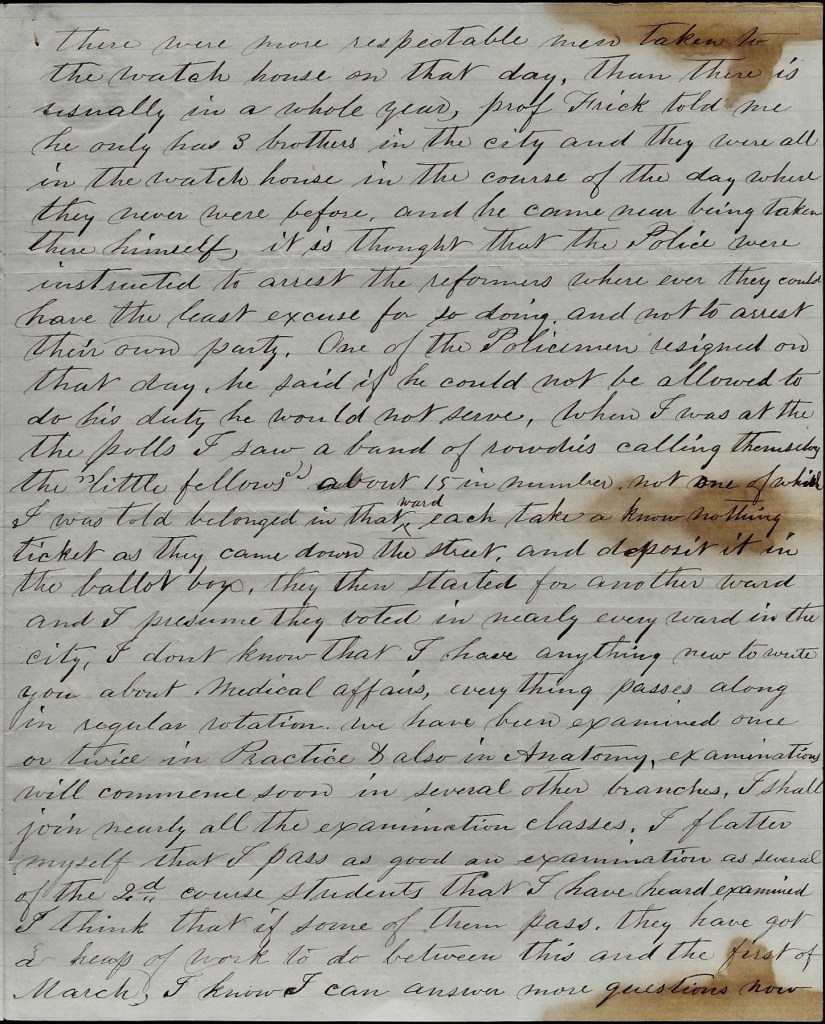 there were more respectable men taken to
the watch house on that day, than there is
usually in a whole year, prof Frick told me
he only has 3 brothers in the city and they were all
in the watch house in the course of the day where
they never were before, and he came near being taken
there himself, it is thought that the Police were
instructed to arrest the reformers where ever they could
have the least excuse for so doing and not to arrest
their own party. One of the Policemen resigned on
that day, he said if he could not be allowed to
do his duty he would not serve, When I was at the
the polls I saw a band of rowdies calling themselvs
the "little fellows" about 15 in number. not one of which
I was told belonged in that ward each take a know nothing
ticket as they came down the street, and deposit it in
the ballot box, they then started for another ward
and I presume they voted in nearly every ward in the
city, I dont know that I have anything new to write
you about Medical affairs, everything passes along
in regular rotation. we have been examined once
or twice in Practice & also in Anatomy, examinations
will commence soon in several other branches, I shall
join nearly all the examination classes. I flatter
myself that I pass as good an examination as several
of the 2d course students that I have heard examined
I think that if some of them pass. they have got
a heap of work to do between this and the first of
March, I know I can answer more questions now